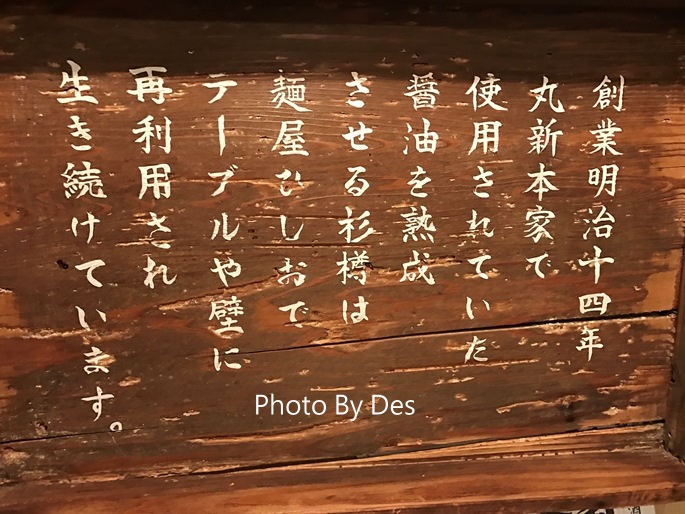 創業明治十四年
丸新本家で
使用されていた
醤油を熟成
させる杉樽は
麺屋ひしおで
テーブルや壁に
再利用され
生き続けています。
Photo By Des